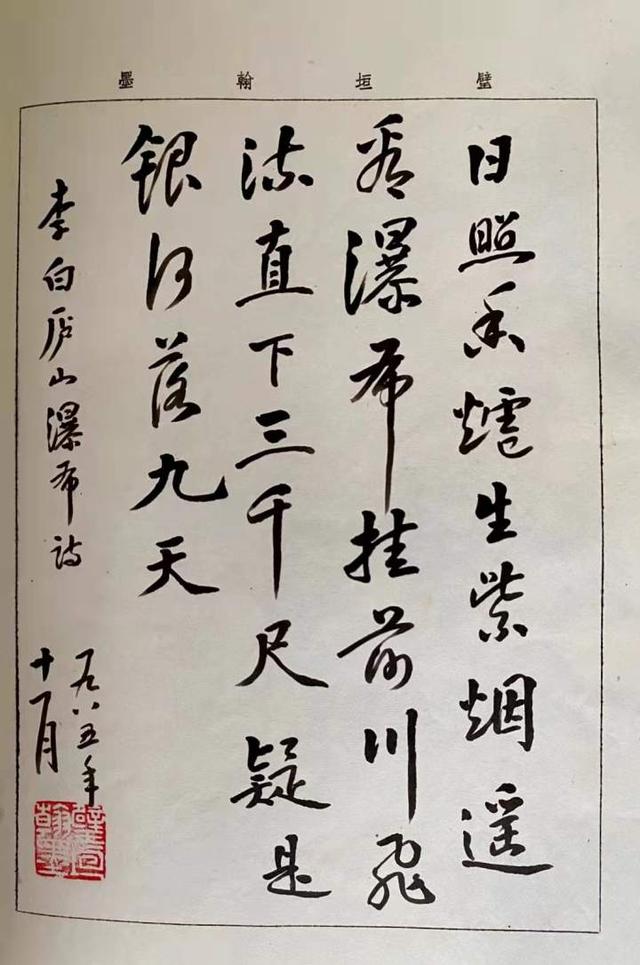 璧垣翰墨
日照香爐生紫烟遥
看瀑布挂前川飛
流直下三千尺疑是
銀河落九天
李白庐山瀑布诗
一九八五年
十一月
璧垣
翰墨